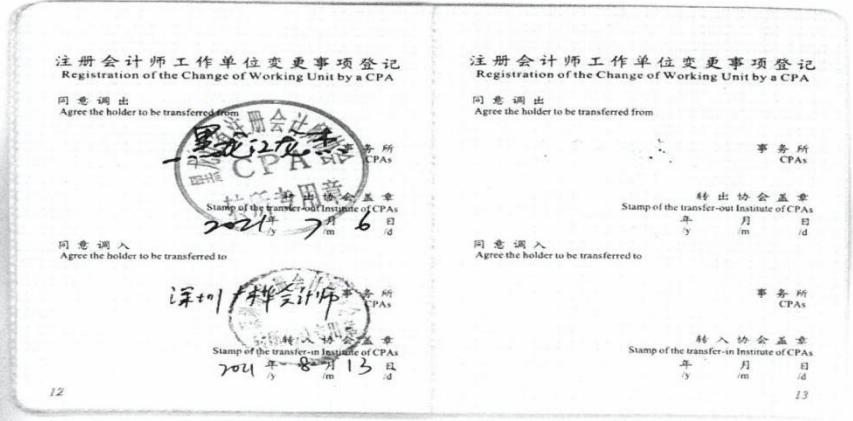 注册会计师工作单位变更事项登记
Registration of the Change of Working Unit by a CPA
同意调出
Agree the holder to be transferred from
黑龙江
事务所
CPA
转所专用章
转出协会盖章
Stamp of the transfer-out Institute of CPAs
2021年 7月 6日
/y /m /d
同意调入
Agree the holder to be transferred to
深圳广桦会计师事务所
CPAs
转入协会盖章
Stamp of the transfer-in Institute of CPAs
2021年 8月 13日
/y /m /d
12
注册会计师工作单位变更事项登记
Registration of the Change of Working Unit by a CPA
同意调出
Agree the holder to be transferred from
事务所
CPAs
转出协会盖章
Stamp of the transfer-out Institute of CPAs
年 月 日
/y /m /d
同意调入
Agree the holder to be transferred to
事务所
CPAs
转入协会盖章
Stamp of the transfer-in Institute of CPAs
年 月 日
/y /m /d
13